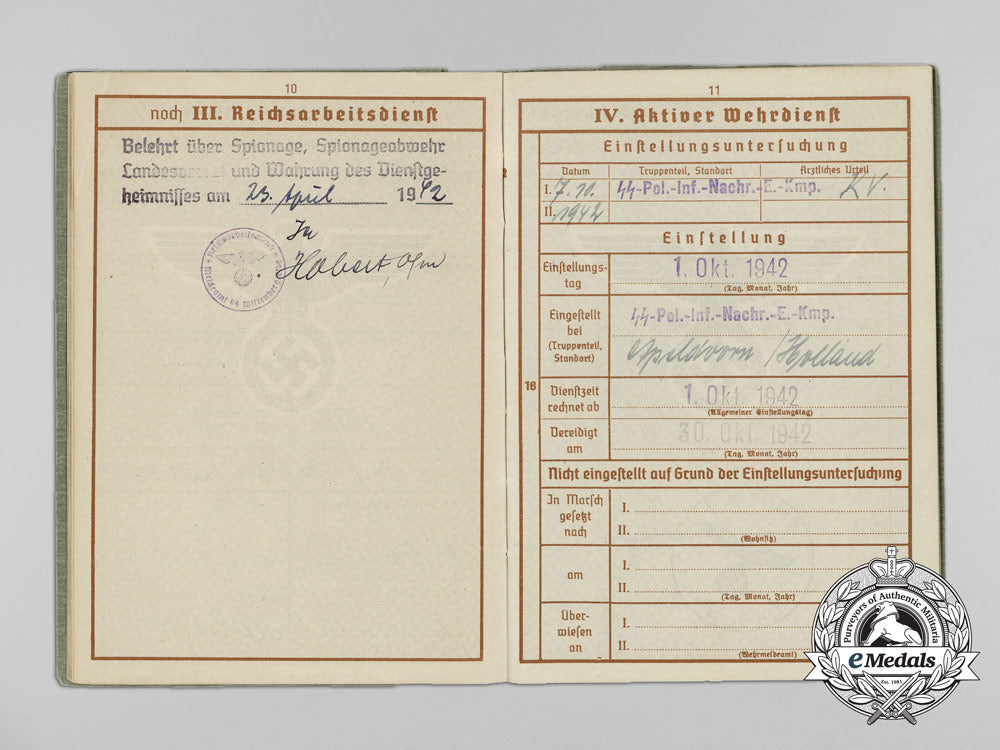 10
noch III. Reichsarbeitsdienst
Belehrt über Spionage, Spionageabwehr
Landesverrat und Wahrung des Dienstge-
heimnisses am 23. April 1942
Reichsarbeitsdienst
Meldeamt 94 Wittenberg
11
IV. Aktiver Wehrdienst
Einstellungsuntersuchung
Datum Truppenteil, Standort Ärztliches Urteil
I. 7.10. SS-Pol.-Inf.-Nachr.-E.-Kmp. KV.
II. 1942
Einstellung
Einstellungs-
tag
1. Okt. 1942
(Tag, Monat, Jahr)
Eingestellt
bei
(Truppenteil,
Standort)
SS-Pol.-Inf.-Nachr.-E.-Kmp.
Apeldoorn / Holland
18
Dienstzeit
rechnet ab
1. Okt. 1942
(Allgemeiner Einstellungstag)
Vereidigt
am
30. Okt. 1942
(Tag, Monat, Jahr)
Nicht eingestellt auf Grund der Einstellungsuntersuchung
In Marsch
gesetzt
nach
I.
II.
(Wohnsitz)
am
I.
II.
(Tag, Monat, Jahr)
Über-
wiesen
an
I.
II.
(Wehrmeldeamt)
Purveyors of Authentic Militaria
eMedals
Est. 1981